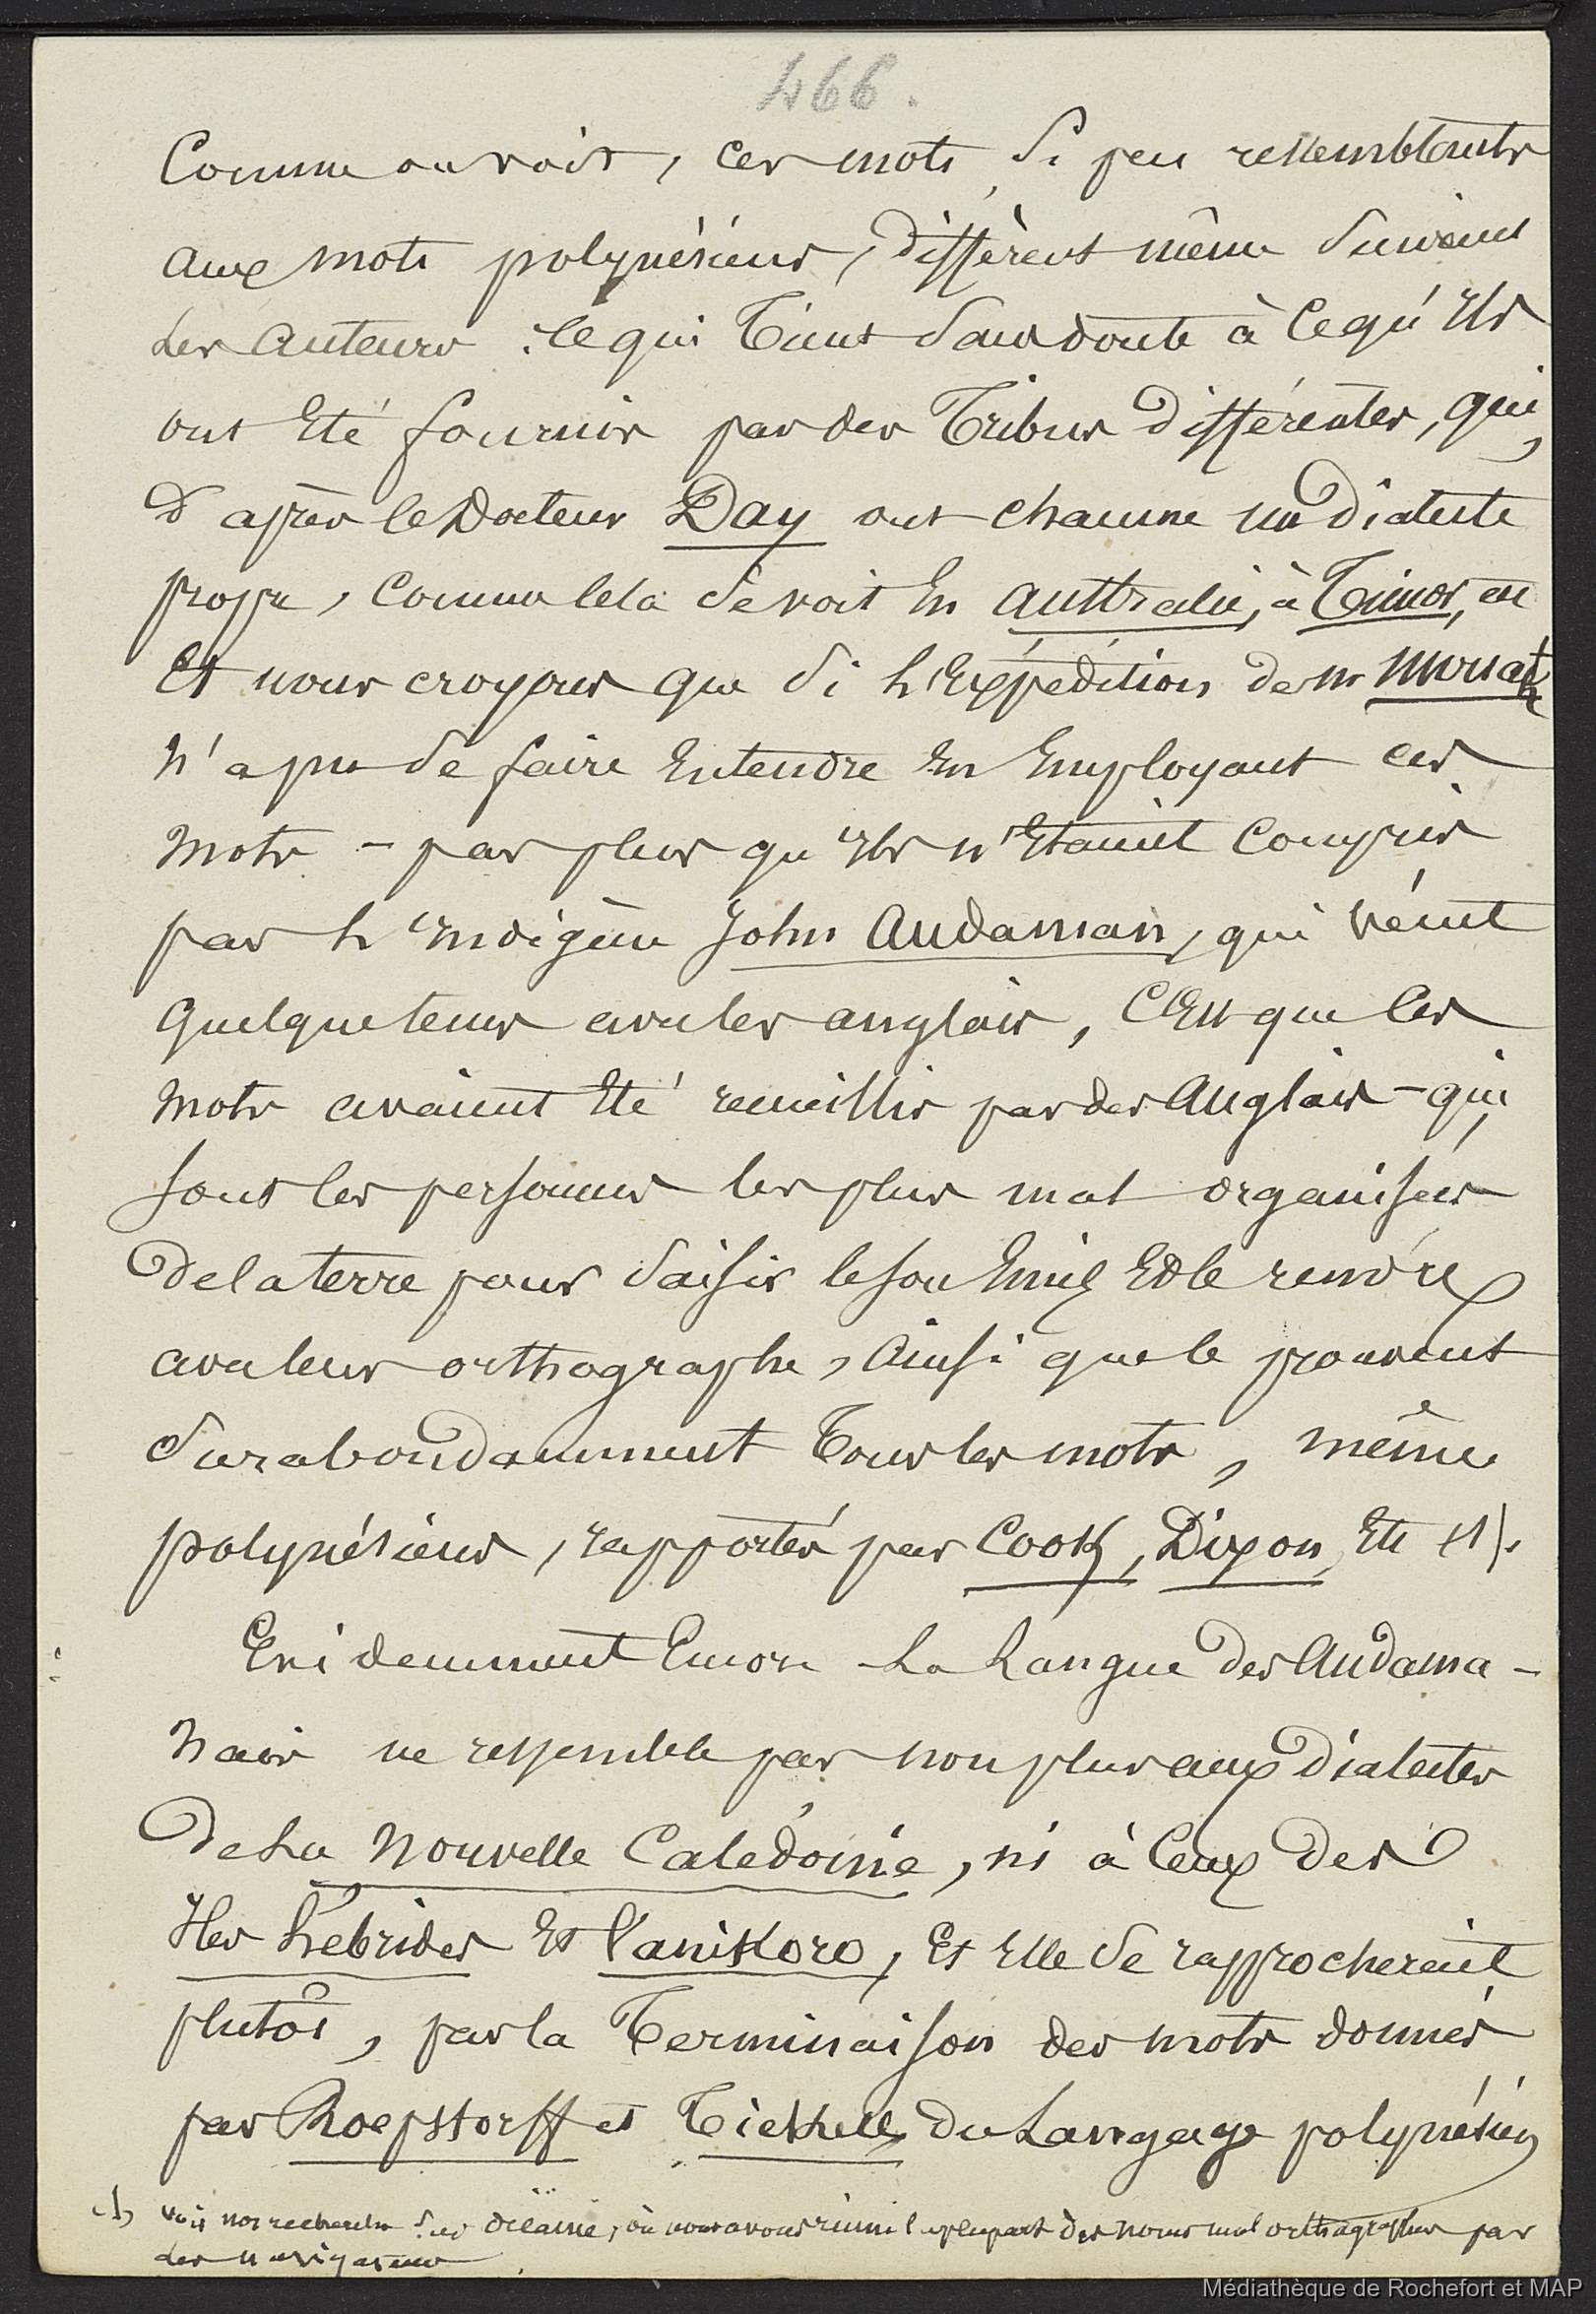 466.
Comme on voit, ces mots si peu ressemblants
aux mots polynésiens, diffèrent même suivant
les auteurs : ce qui tient sans doute à ce qu'ils
ont été fournis par des Tribus différentes, qui,
d'après le Docteur Day ont chacune un dialecte
propre, comme cela se voit en Australie, à Timor, etc
Et nous croyons que si l'Expédition de Mr Mouatt
n'a pu se faire entendre en employant ces
mots - pas plus qu'ils n'étaient compris
par l'indigène John Andaman, qui vécut
quelque tems avec les anglais, c'est que les
mots avaient été recueillis par des Anglais - qui,
sont les personnes les plus mal organisées
de la terre pour saisir le son émis et le rendre
avec leur orthographe, ainsi que le prouvent
surabondamment tous les mots, même
polynésiens, rapportés par Cook, Dixon, etc (1).
Evidemment encore la langue des Andama-
nais ne ressemble pas non plus aux dialectes
de la Nouvelle Calédonie, ni à ceux des
Iles hébrides et Vanikoro, et elle se rapprocherait
plutôt, par la terminaison des mots donnés
par Roepstorff et Tickell, du langage polynésien
(1) voir nos recherches sur , où nous avons réuni la plupart des noms mal orthographiés par
les navigateurs.
Médiathèque de Rochefort et MAP